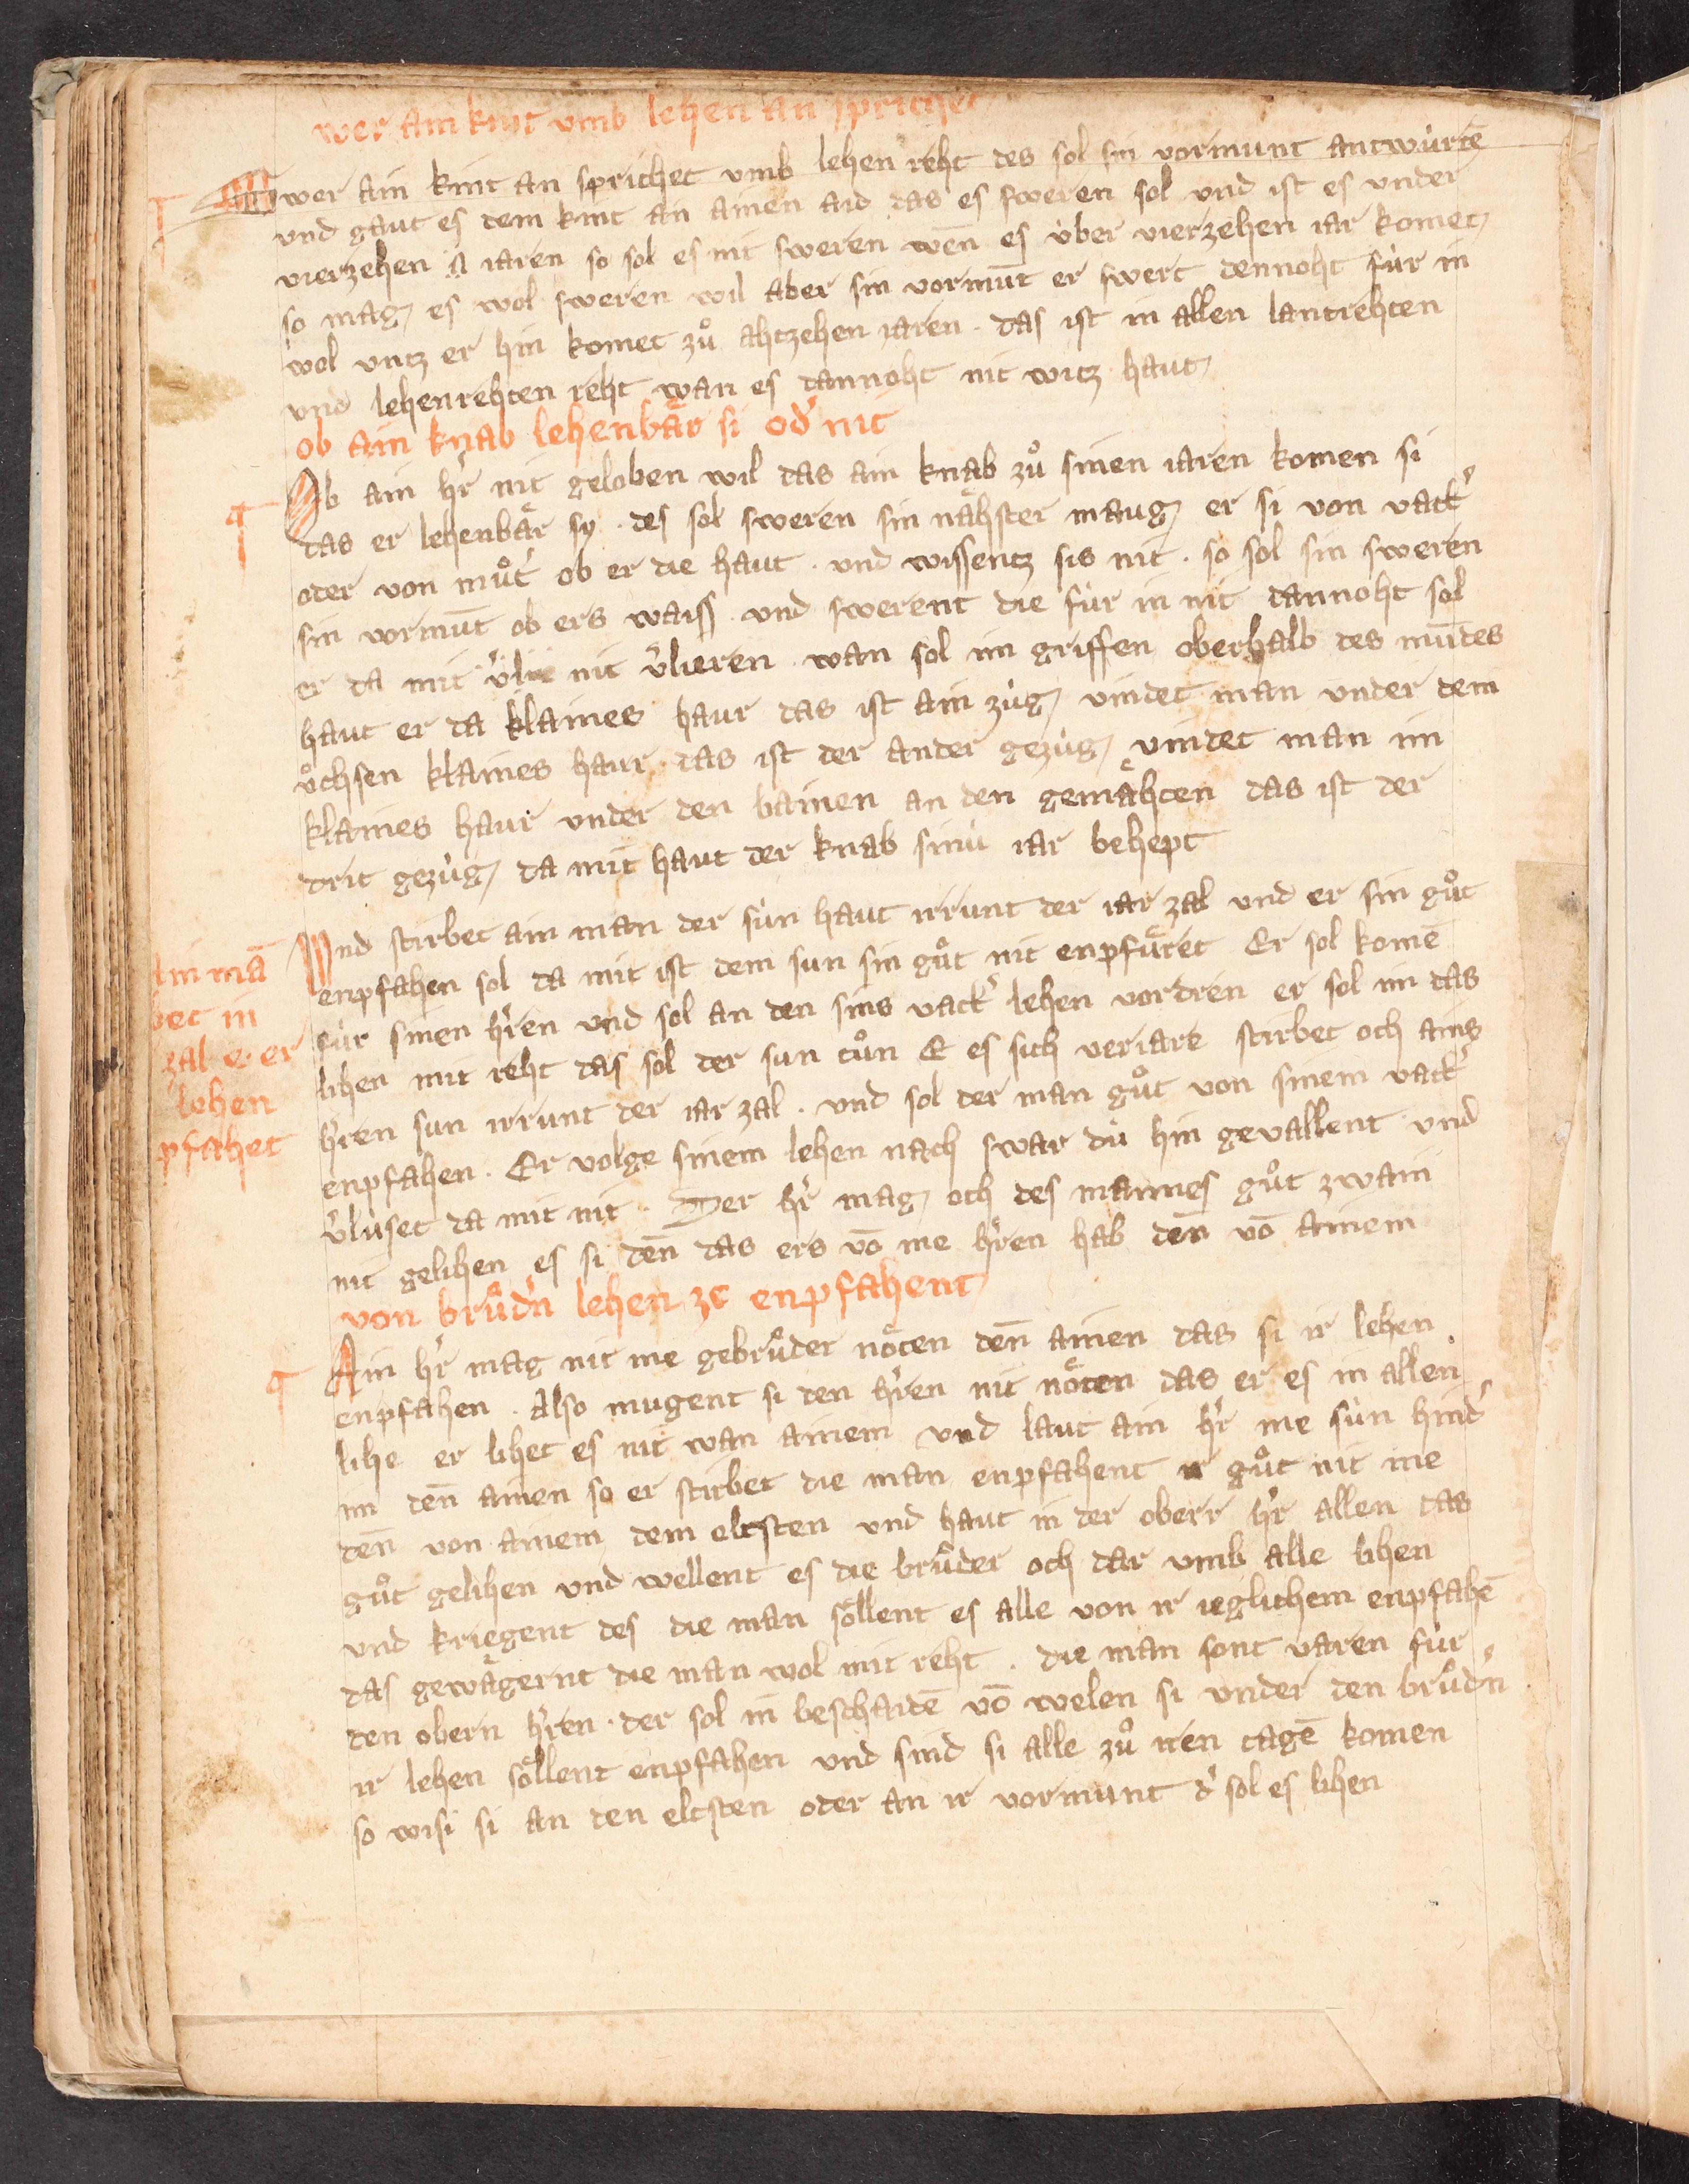 wer ain kint vmb lehen an sprichet
Swer ain kint an sprichet vmb lehen reht des sol sin vormunt antwùrtē
vnd gaut es dem kint an ainen aid das es sweren sol vnd ist es vnder
vierzehen iaren so sol es nit sweren wen̄ es ùber vierzehen iar komet
so mag es wol sweren wil aber sin vormūt er swert dennoht fùr in
wol vntz er hin komet zů ahtzehen iaren · das ist in allen lantrehten
vnd lehenrehten reht wan es dannoht nit witz haut
ob ain knab lehenbår si od' nit
Ob ain h'r nit geloben wil das ain knab zů sinen iaren komen si
das er lehenbår sy · des sol sweren sin nåhster maug er si von vatt'
oder von můt' ob er die haut · vnd wissentz sis nit · so sol sin sweren
sin vormūt ob ers waiss · vnd swerent die fùr in nit dannoht sol
er da mit v'lie nit v'lieren · wan sol im griffen oberhalb des mūdes
haut er da klaines haur das ist ain zùg vindet man vnder dem
ůchsen klaines haur · das ist der ander gezùg vindet man im
klaines haur vnder den bainen an den gemåhten das ist der
drit gezùg da mit haut der knab sinù iar behept
Vnd stirbet ain man der sùn haut irrunt der iar zal vnd er sin gůt
enpfahen sol da mit ist dem sun sin gůt nit enpfůret Er sol komē
fùr sinen h'ren vnd sol an den sins vatt' lehen vordren er sol im das
lihen mit reht das sol der sun tůn E es sich veriare stirbet och ains
h'ren sun irrunt der iar zal · vnd sol der man gůt von sinem vatt'
enpfahen · Er volge sinem lehen nach swar dù hin gevallent vnd
v'lùset da mit nit · Der h'r mag och des mannes gůt zwain
nit gelihen es si den̄ das ers vō me h'ren hab den̄ vō ainem
ain mā
bet in
zal e er
lehen
pfahet
von brůd'n lehen ze enpfahent
Ain h'r mag nit me gebrůder nőten den̄ ainen das si ir lehen
enpfahen · Also mugent si den h'ren nit nőten das er es in allen
lihe er lihet es nit wan ainem vnd laut ain h'r me sùn hind'
im den̄ ainen so er stirbet die man enpfahent ir gůt nit me
den̄ von ainem dem eltsten vnd haut in der oberr h'r allen das
gůt gelihen vnd wellent es die brůder och dar vmb alle lihen
vnd kriegent des die man sőllent es alle von ir ieglichem enpfahē
das gewågernt die man wol mit reht · die man sont varen fùr
den obern h'ren · der sol in beschaidē vō welen si vnder den brůd'n
ir lehen sőllent enpfahen vnd sind si alle zů iren tagē komen
so wisi si an den eltsten oder an ir vormunt d' sol es lihen